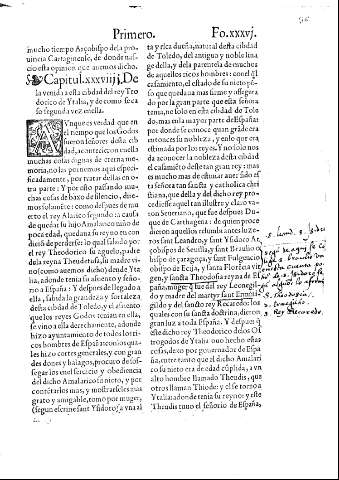 Primero. Fo.xxxvj.
mucho tiempo Arçobispo dela pro
uincia Cartaginense, de donde nas
cio esta opinion que auemos dicho.
Capitul.xxxviiij. De
la venida a esta cibdad del rey Teo
dorico de Ytalia, y de como se ca
so segunda vez enella.
AVnque es verdad que en
el tiempo que los Godos
fueron señores desta cib
dad, acontescieron enella
muchas cosas dignas de eterna me
moria, no las ponemos aqui especi
ficadamente, por tratar dellas en o
tra parte: Y por esto passando mu
chas cosas debaxo de silencio, dire
mos solamente: como despues de muer
to el rey Alarico segundo (a causa
de quedar su hijo Amalarico niño de
poca edad, que daua su reyno en con
dició de perderse) lo qual sabido por
el rey Theodorico su aguelo, padre
dela reyna Theudetusa, su madre vi
no (como auemos dicho) desde Yta
lia, adonde tenia su reyno y assien
to a España: Y despues de llegado a
ella, sabida la grandeza y fortaleza
desta cibdad de Toledo, y el assiento
que los reyes Godos tenian en ella,
se vino a ella derechamente, adonde
hizo ayuntamiento de todos los ri
cos hombres de España a con los qua
les hizo cortes generales, y con gran
des dones y halagos, procuro de sos
segar los enel seruicio y obediencia
del dicho Amalarico su nieto, y por
contentar los mas, y mostrarse les mas
grato y amigable, tomo por muger,
(segun escriue sant Ysidoro) a vna al
ta y rica dueña, natural desta cibdad
de Toledo, del antiguo y noble lina
ge della, y dela parentela de muchos
de aquellos ricos hombres: con el qual
casamiento, el estado de su nieto pen
so que quedaua mas firme y assegura
do por la gran parte que esta señora
tenia, no solo en esta cibdad de Tole
do: mas en la mayor parte de España:
por donde se conoce quan grande era
entonces su nobleza, y enlo que era
estimada por los reyes. Y no solo nos
da a conocer la nobleza desta cibdad
el casamiento deste tan gran rey: mas
es mucho mas de estimar auer sido es
ta señora tan sancta y catholica chris
tiana, que della y del dicho rey pro
cediesse aquel tan illustre y claro va
ron Seueriano, que fue despues Du
que de Cartagena: de quien proce
dieron aquellos resulandientes luze
ros sant Leandro, y sant Ysidoro Ar
çobispos de Seuilla, y sant Braulio o
bispo de çaragoça, y sant Fulgencio
obispo de Ecija, y santa Florentina vir
gen, y sancta Theodosia reyna de Es
paña, muger que fue del rey Leonegil
do y madre del martyr sant Ermeni
gildo y del sancto rey Recaredo: los
quales con su sancta doctrina, dieron
gran luz a toda España. Y despues que
este dicho rey Theodorico delos Os
trogodos de Ytalia ouo hecho estas
cosas, dexo por gouernador de Espa
ña, entre tanto que el dicho Amalari
co su nieto era de edad cúplida, a vn
alto hombre llamado Theudis, que
otros llaman Thiode: y el se torno a
Ytalia adonde tenia su reyno: y este
Theudis tuuo el señorio de España,